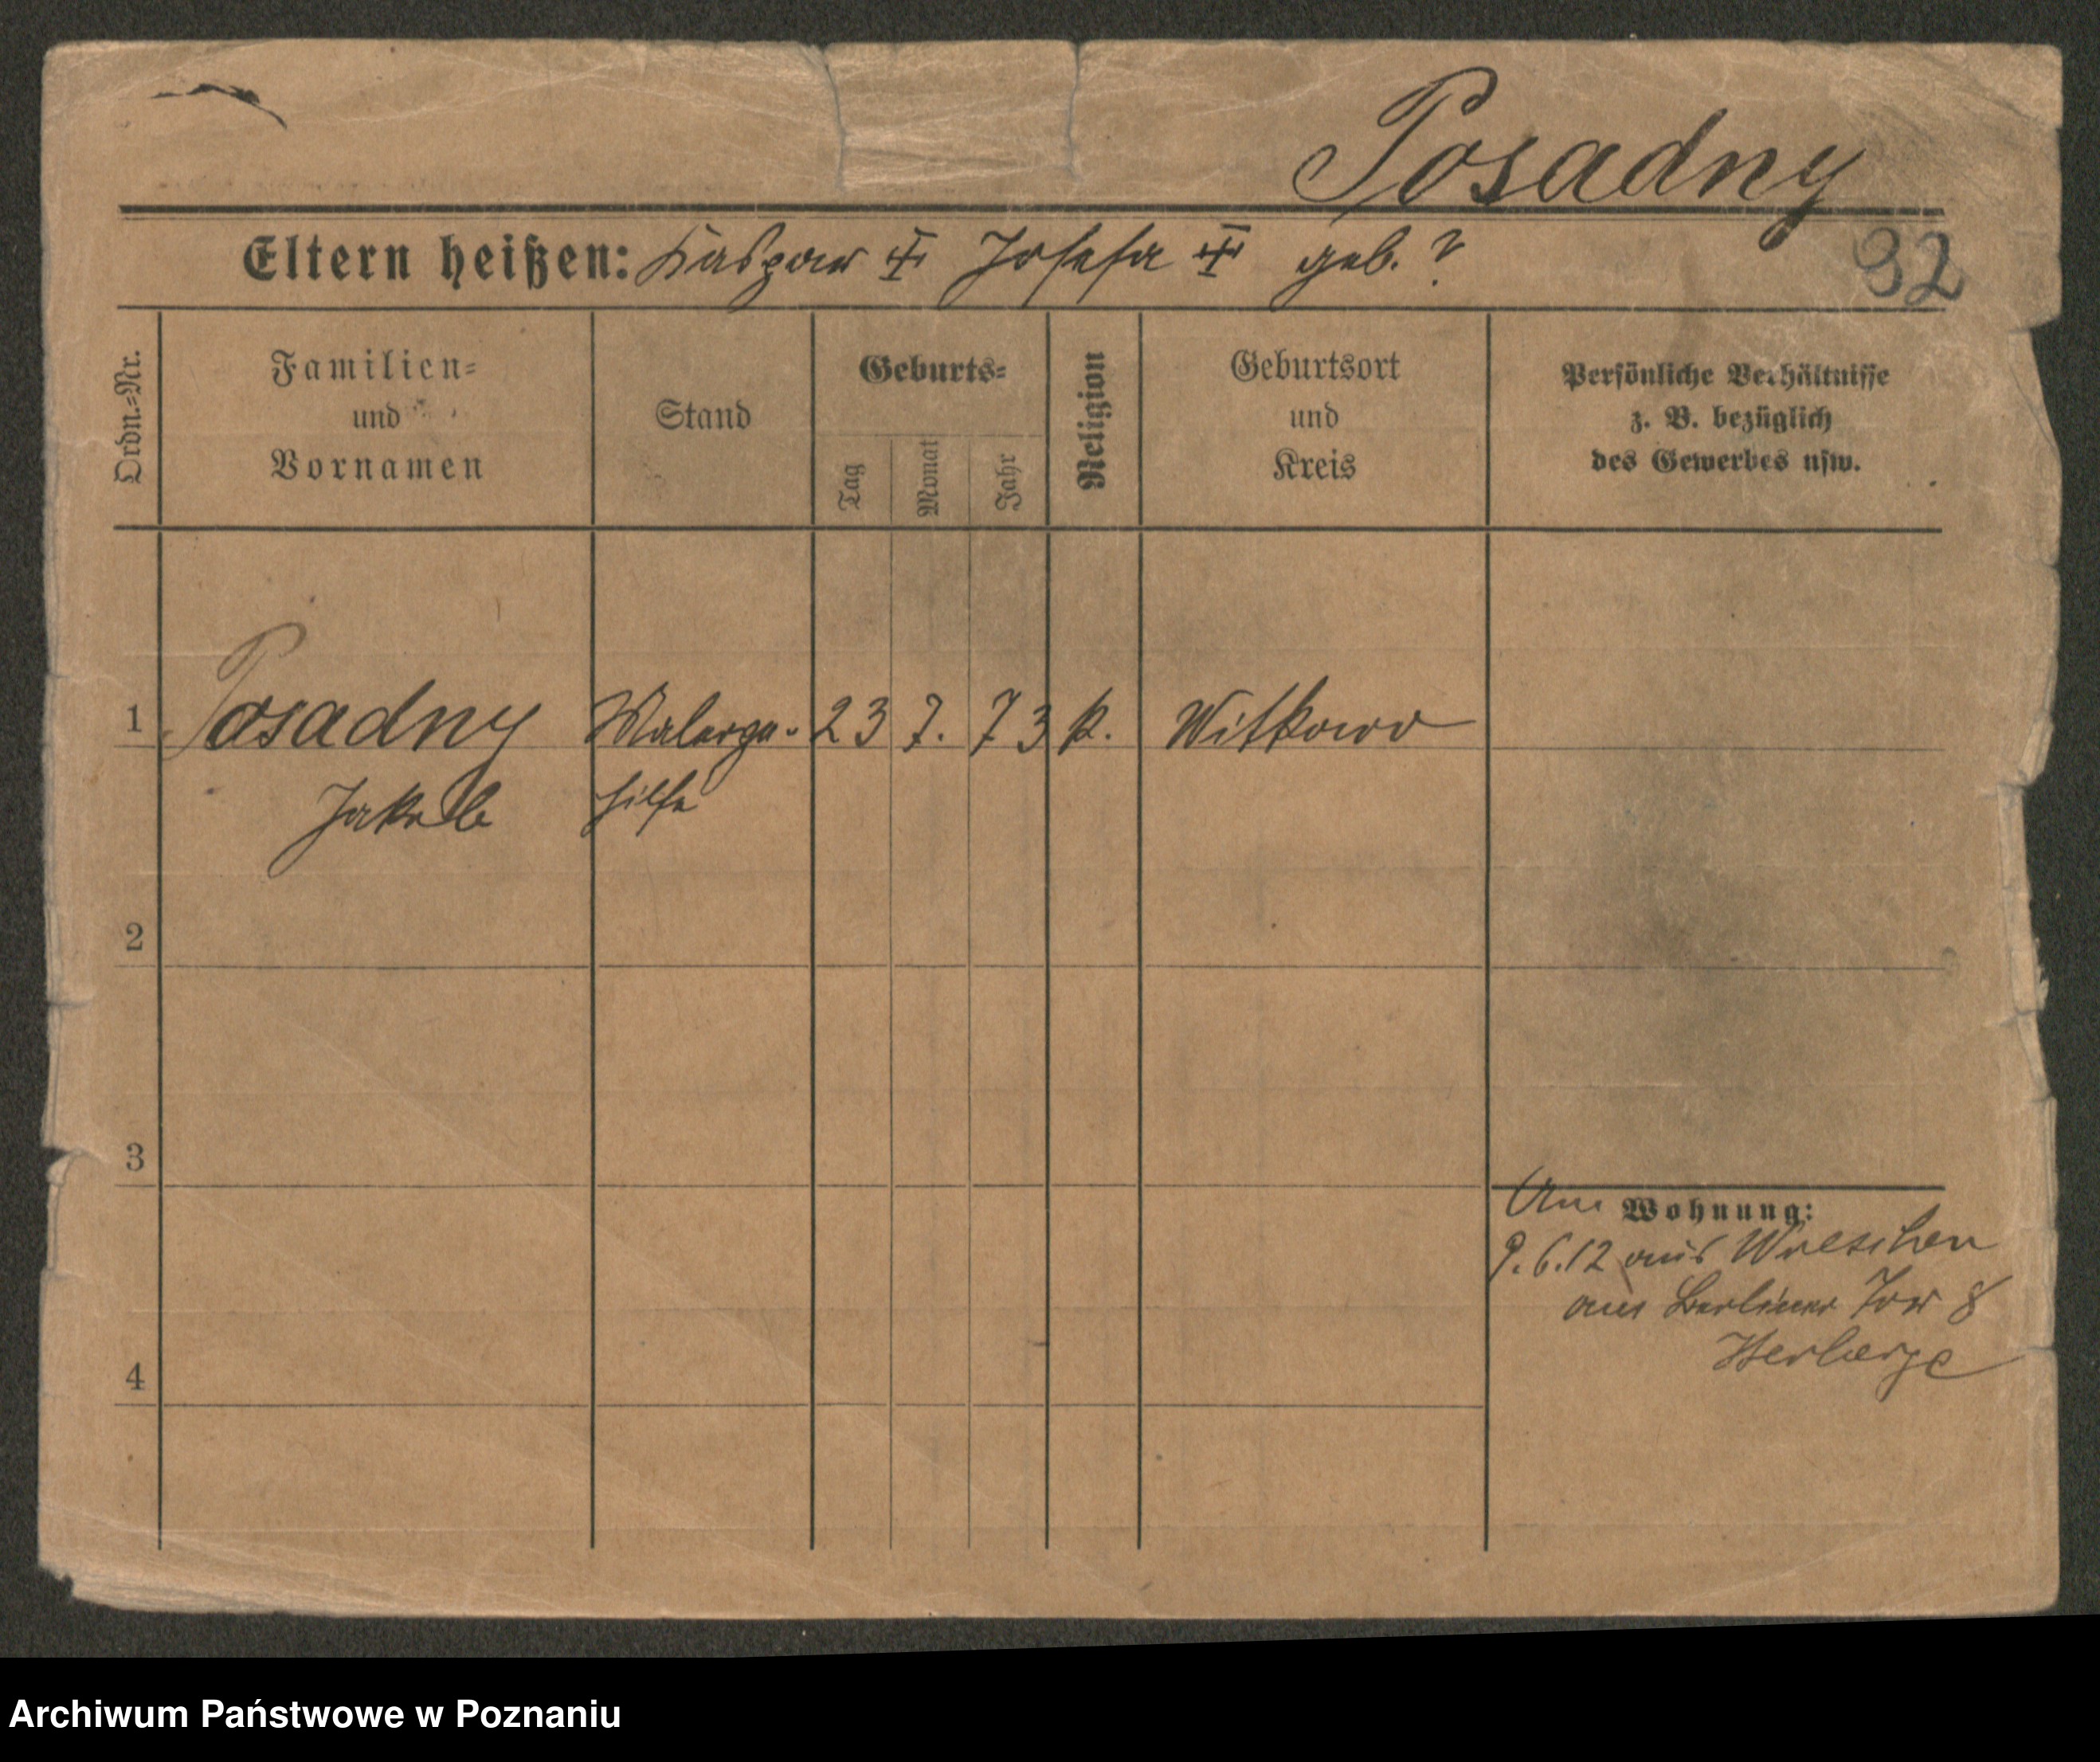 Posadny
Eltern heißen: Kaspar ‡ Josefa ‡ geb. ?
32
Ordn.=Nr.
Familien=
und
Vornamen
Stand
Geburts=
Tag
Monat
Jahr
Religion
Geburtsort
und
Kreis
Persönliche Verhältnisse
z. B. bezüglich
des Gewerbes usw.
1 Posadny Malerge- 23 7. 73 k. Witkowo
Jakob hilfe
2
3
Wohnung:
9.6.12 aus Wreschen
Berliner Tor 8
Herberge
4
Archiwum Państwowe w Poznaniu